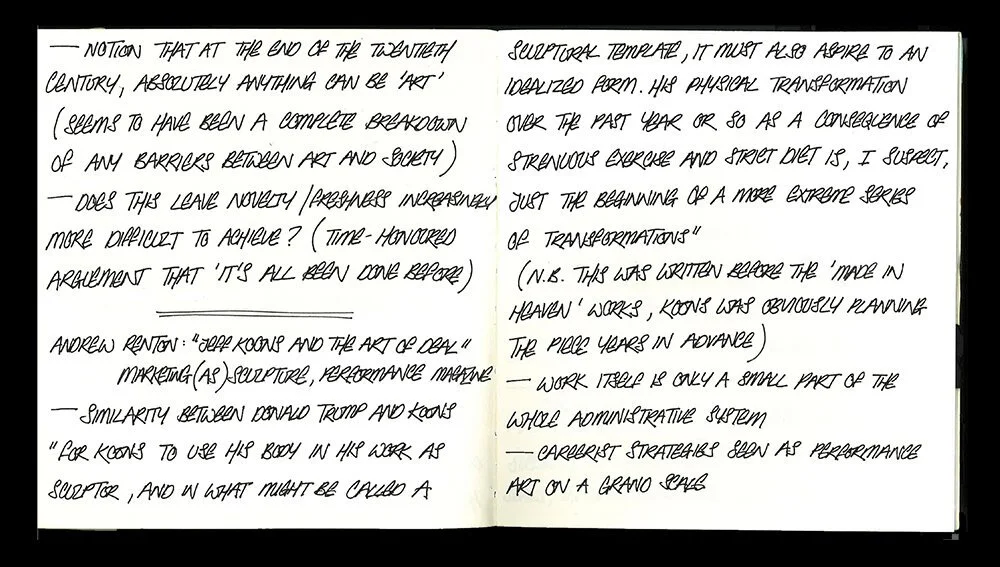 — NOTION THAT AT THE END OF THE TWENTIETH
CENTURY, ABSOLUTELY ANYTHING CAN BE 'ART'
(SEEMS TO HAVE BEEN A COMPLETE BREAKDOWN
OF ANY BARRIERS BETWEEN ART AND SOCIETY)
— DOES THIS LEAVE NOVELTY/FRESHNESS INCREASINGLY
MORE DIFFICULT TO ACHIEVE? (TIME-HONOURED
ARGUEMENT THAT 'IT'S ALL BEEN DONE BEFORE)
ANDREW RENTON: "JEFF KOONS AND THE ART OF DEAL"
MARKETING (AS) SCULPTURE, PERFORMANCE MAGAZINE
— SIMILARITY BETWEEN DONALD TRUMP AND KOONS
"FOR KOONS TO USE HIS BODY IN HIS WORK AS
SCULPTOR, AND IN WHAT MIGHT BE CALLED A
SCULPTORAL TEMPLATE, IT MUST ALSO ASPIRE TO AN
IDEALIZED FORM. HIS PHYSICAL TRANSFORMATION
OVER THE PAST YEAR OR SO AS A CONSEQUENCE OF
STRENUOUS EXERCISE AND STRICT DIET IS, I SUSPECT,
JUST THE BEGINNING OF A MORE EXTREME SERIES
OF TRANSFORMATIONS"
(N.B. THIS WAS WRITTEN BEFORE THE 'MADE IN
HEAVEN' WORKS, KOONS WAS OBVIOUSLY PLANNING
THE PIECE YEARS IN ADVANCE)
— WORK ITSELF IS ONLY A SMALL PART OF THE
WHOLE ADMINISTRATIVE SYSTEM
— CAREERIST STRATEGIES SEEN AS PERFORMANCE
ART ON A GRAND SCALE